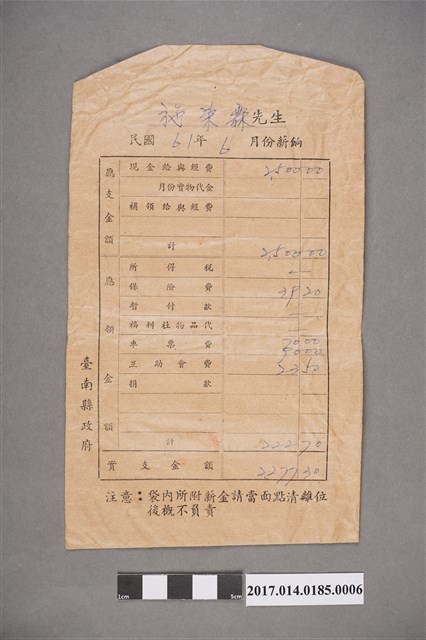 施東森先生
民國61年6月份薪餉
應支金額
現金給與經費 2,500.00
月份實物代金
補領給與經費
計 2,500.00
應領金額
所得稅 —
保險費 39.20
暫付款
福利社物品代 —
車票費 70.00
60.00
互助會費 53.50
捐款
計 222.70
實支金額 2277.30
臺南縣政府
注意：袋內所附薪金請當面點清離位
後概不負責
1cm 5cm
2017.014.0185.0006